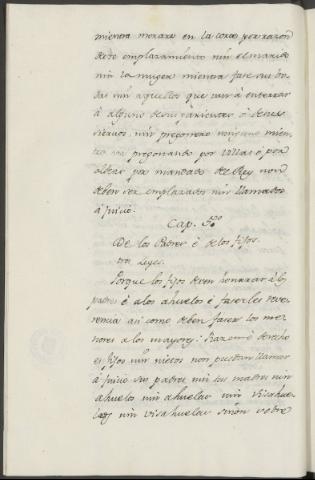 mientra morare en la corte por razon
deste emplazamiento nin el marido
nin la muger mientra face sus bo-
das nin aquellos que van à enterrar
à alguno de sus parientes ò de sus
vecinos nin pregonero ninguno mien-
tra va pregonando por villas ò por
aldeas por mandado de Rey non
deben ser emplazados nin llamados
à juicio.
Cap. 5.º
De los Padres è de los fijos.
tres Leyes.
Porque los fijos deven honrrar à los
padres è a los ahuelos è facerles reve-
rencia asi como deben facer los me-
nores a los mayores: Razon è derecho
es fijos nin nietos non puedan llamar
à juicio sus padres nin sus madres nin
ahuelos nin ahuelas nin visahue-
los nin visahuelas sinon sobre